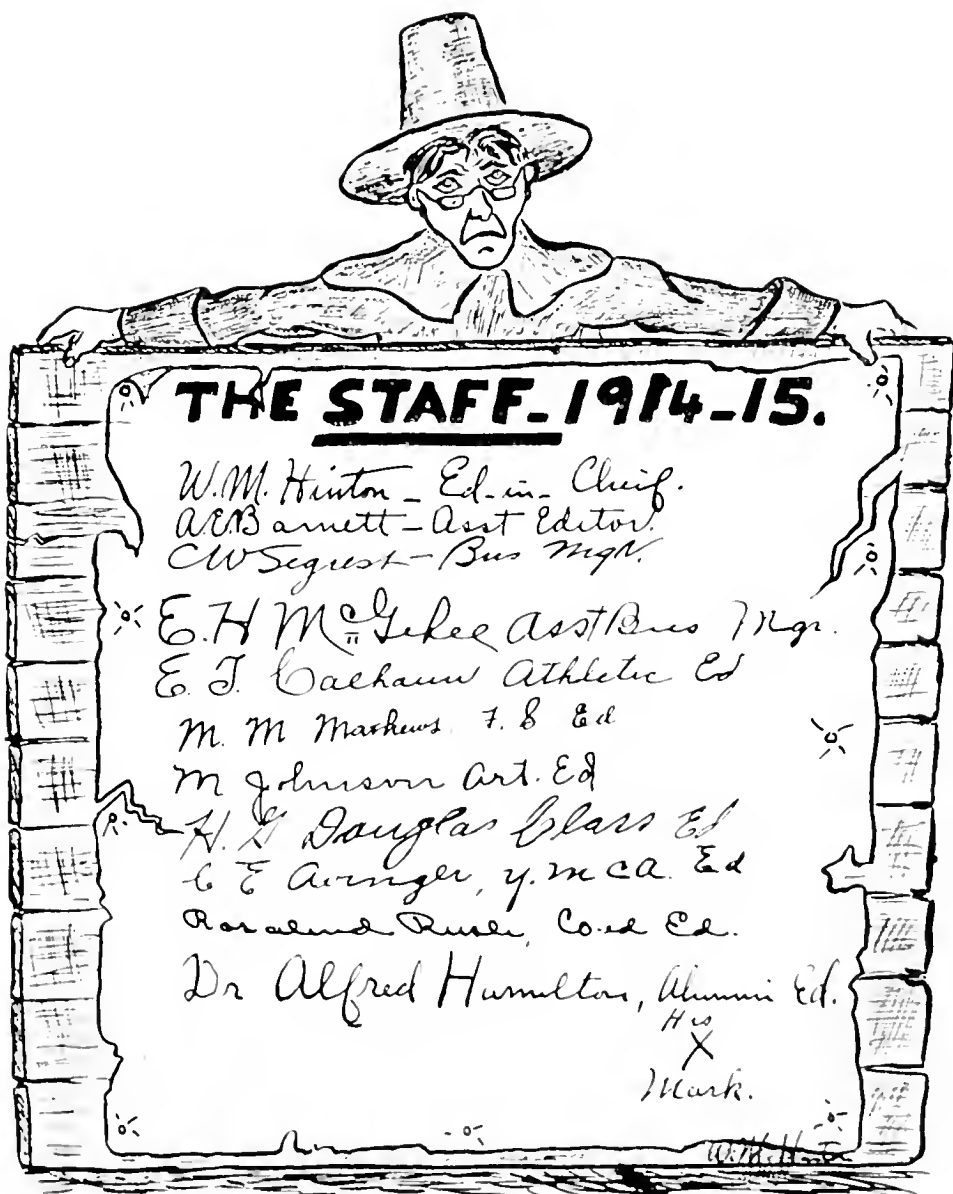 THE STAFF - 1914-15.
W.M. Hinton - Ed-in-Chief.
A.E. Barnett - Asst Editor.
C W Segrest - Bus Mgr.
E. H McGehee Asst Bus Mgr.
E. T. Calhoun Athletic Ed
M. M Mathews. F. S Ed
M Johnson Art. Ed
H. G Douglas Class Ed
C E Avinger, Y.M C A. Ed
Rosalind Rush, Co.ed Ed.
Dr Alfred Hamilton, Alumni Ed.
His
X
Mark.
W.M. Hinton